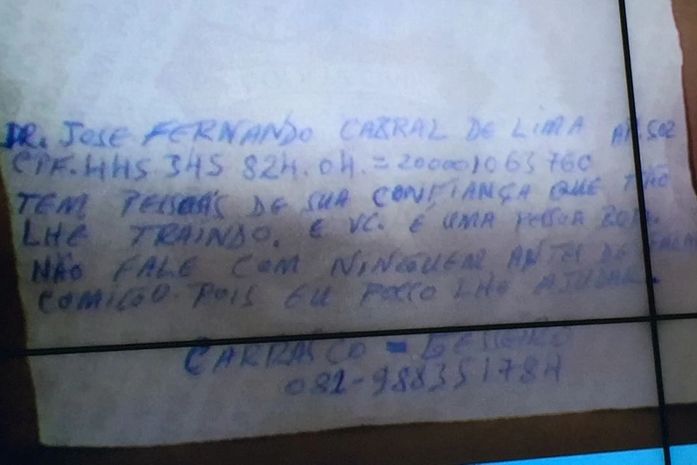 DR. JOSE FERNANDO CABRAL DE LIMA AP. 502
CPF. 445 345 824. 04. = 200001063760
TEM PESSOAS DE SUA CONFIANÇA QUE TÃO
LHE TRAINDO. E VC. E UMA PESSOA BOA.
NÃO FALE COM NINGUEM ANTES DE FALAR
COMIGO. POIS EU POSSO LHE AJUDAR.
CARRASCO =
082-988351784